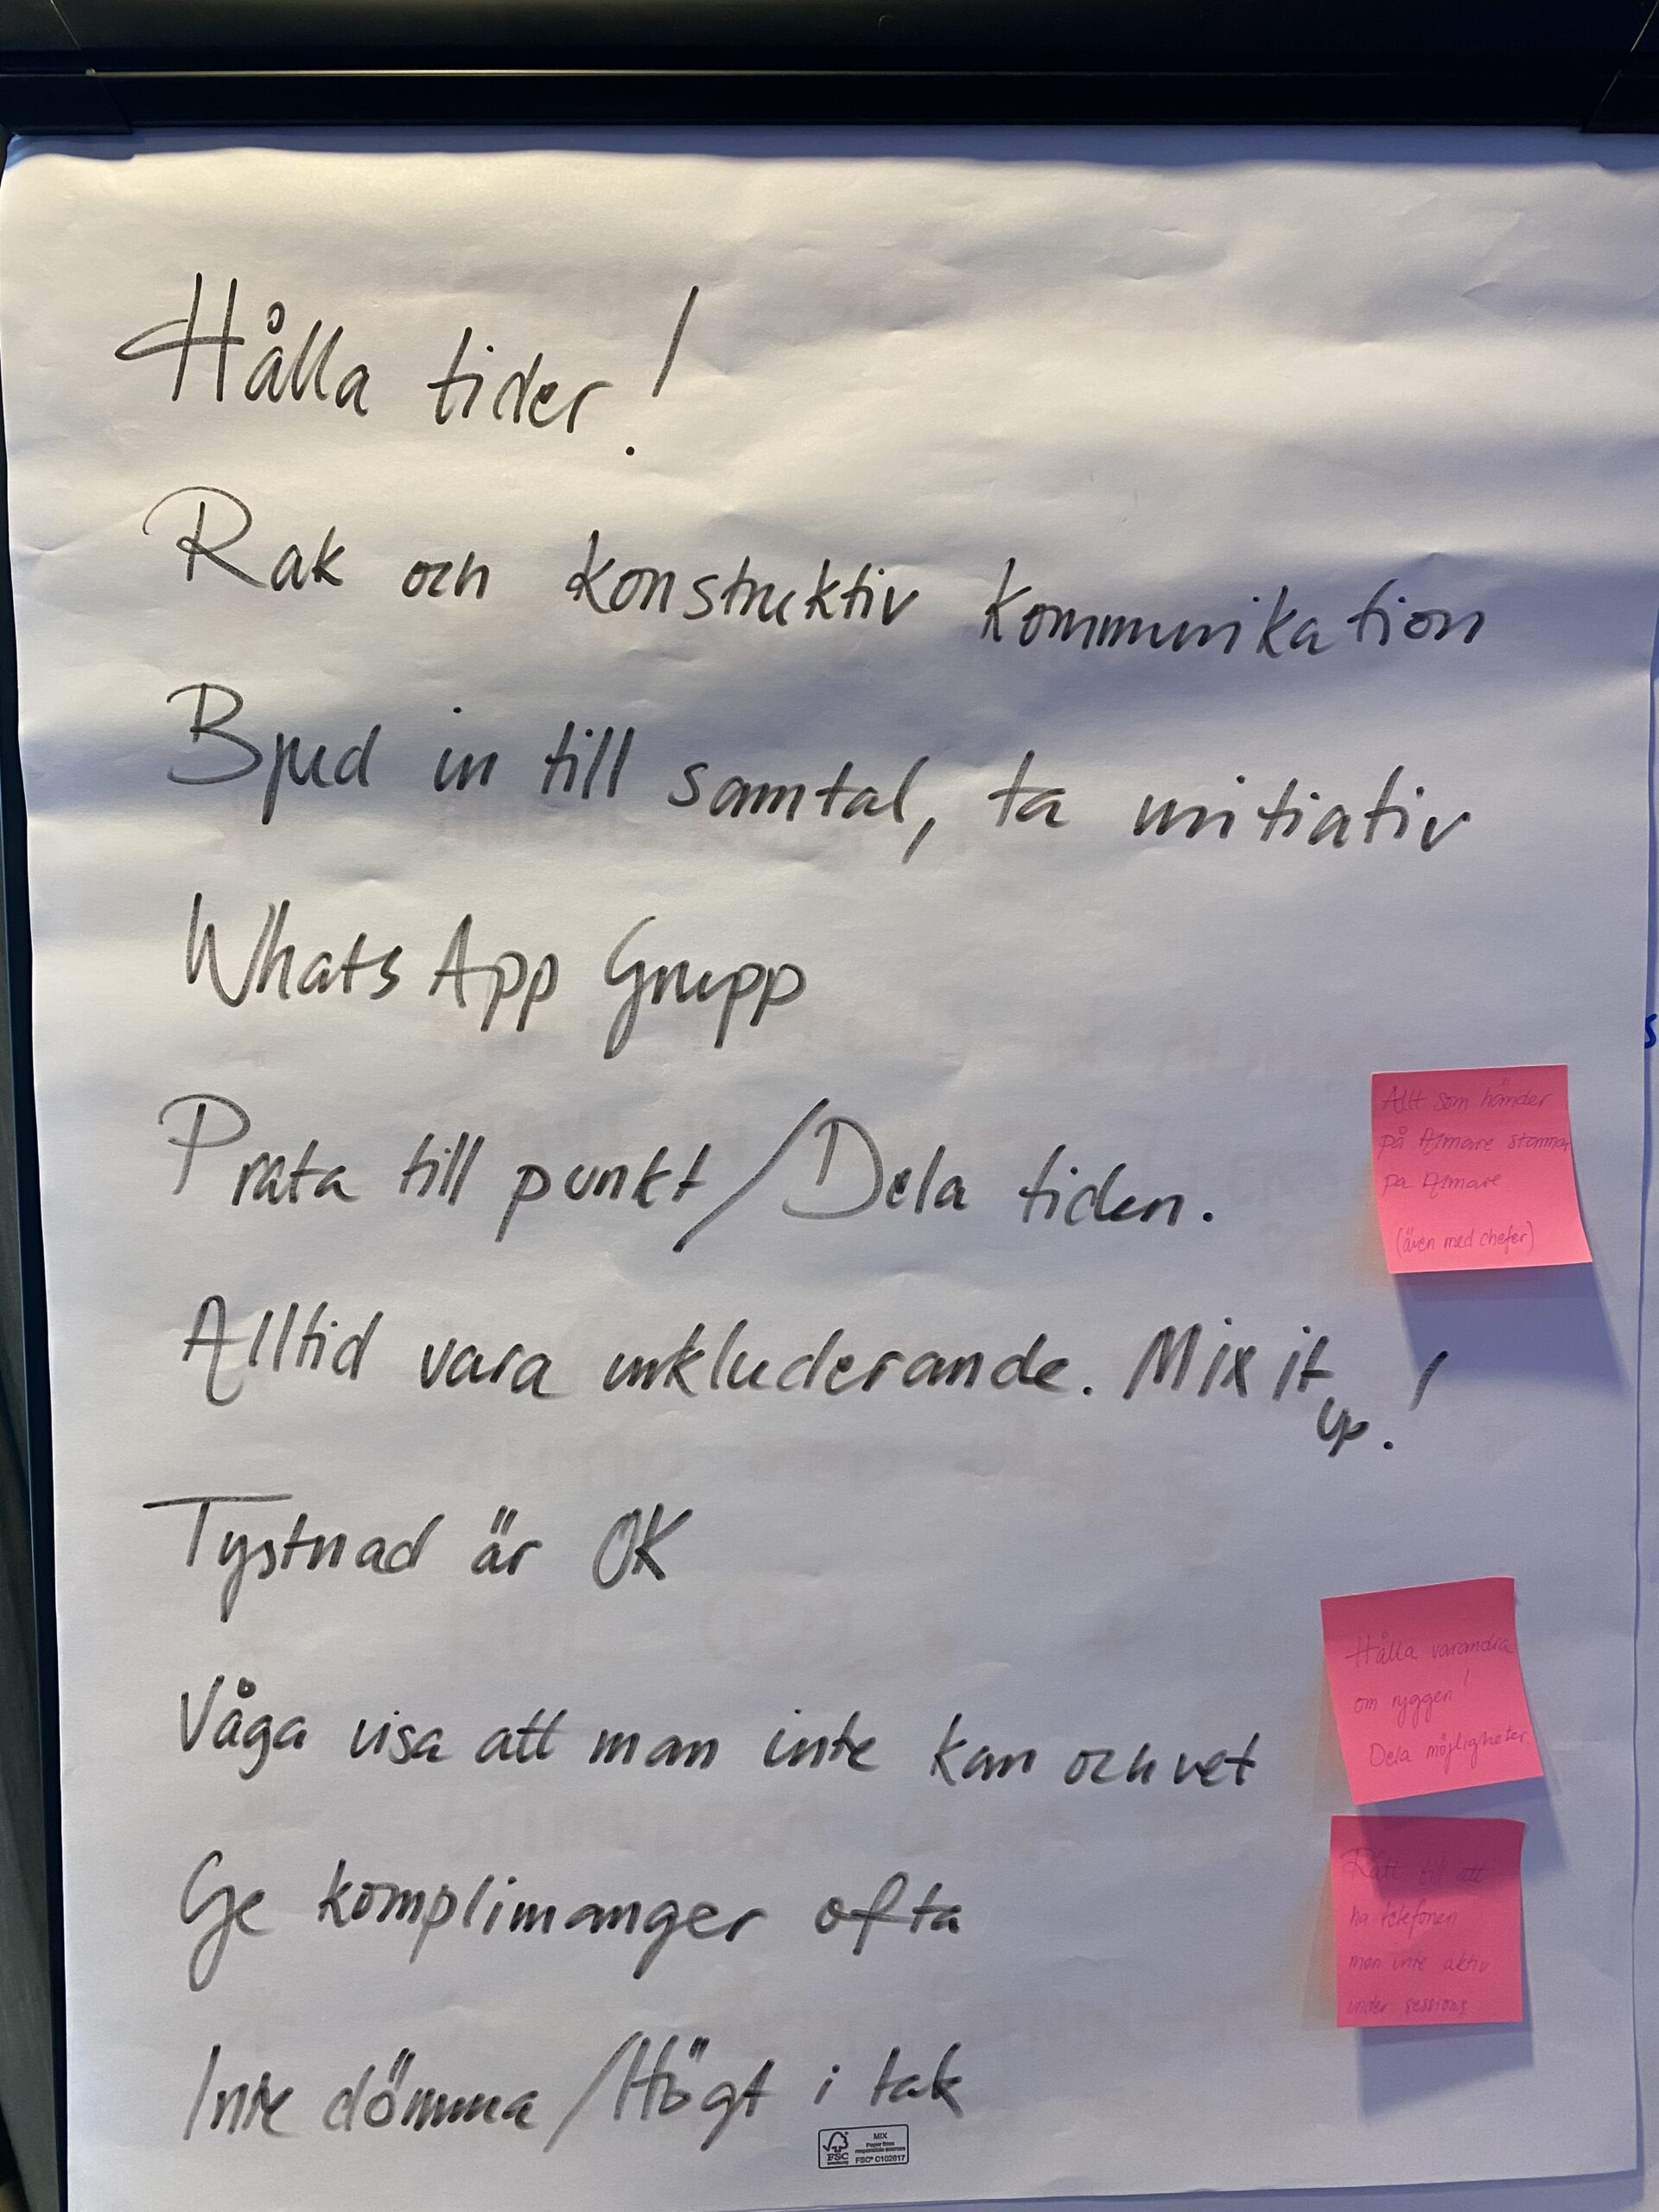 Hålla tider!
Rak och konstruktiv kommunikation
Bjud in till samtal, ta initiativ
WhatsApp Grupp
Prata till punkt/Dela tiden.
Allt som händer
på Almare stannar
på Almare
(även med chefer)
Alltid vara inkluderande. Mix it
up!
Tystnad är OK
Hålla varandra
om ryggen!
Dela möjligheter
Våga visa att man inte kan och vet
Ge komplimanger ofta
Rätt till att
ha telefonen
men inte aktiv
under sessions
Inte dömma/Högt i tak
FSC
MIX
Paper from
responsible sources
FSC® C102617